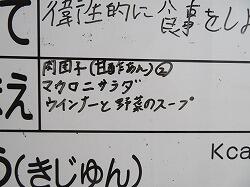 て 衛生的に食事をしよ
え 肉団子(甘酢あん)②
マカロニサラダ
ウインナーと野菜のスープ
う(きじゅん) Kca